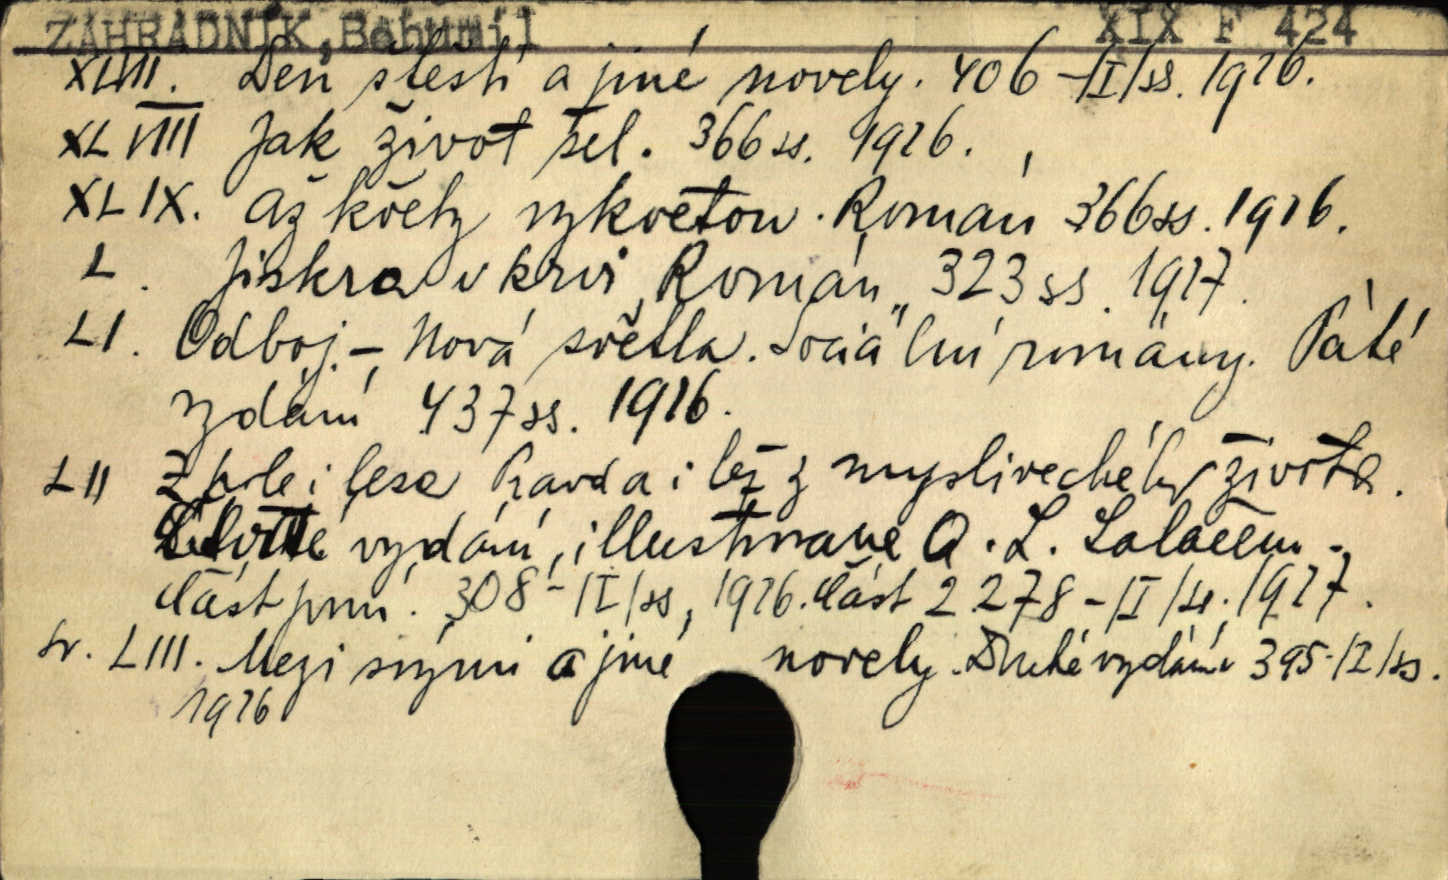 ZAHRADNÍK, Bohumil XIX F 424
XLVII. Den štěstí a jiné novely. 406-/I/ss. 1926.
XLVIII Jak život šel. 366 ss. 1926.
XLIX. Až květy vykvetou. Román 366 ss. 1926.
L. Jiskra v krvi „Román" 323 ss. 1927.
LI. Odboj. - Nová světla. Sociální romány. Páté
vydání 437 ss. 1926.
LII Z pole i lesa Pravda i lež z mysliveckého života.
vydání, illustrované O. L. Salačem.
část první. 308-/I/ss, 1926. část 2 278-/I/ss. 1927.
Sv. LIII. Mezi svými a jiné novely. Druhé vydání 395-/I/ss.
1926